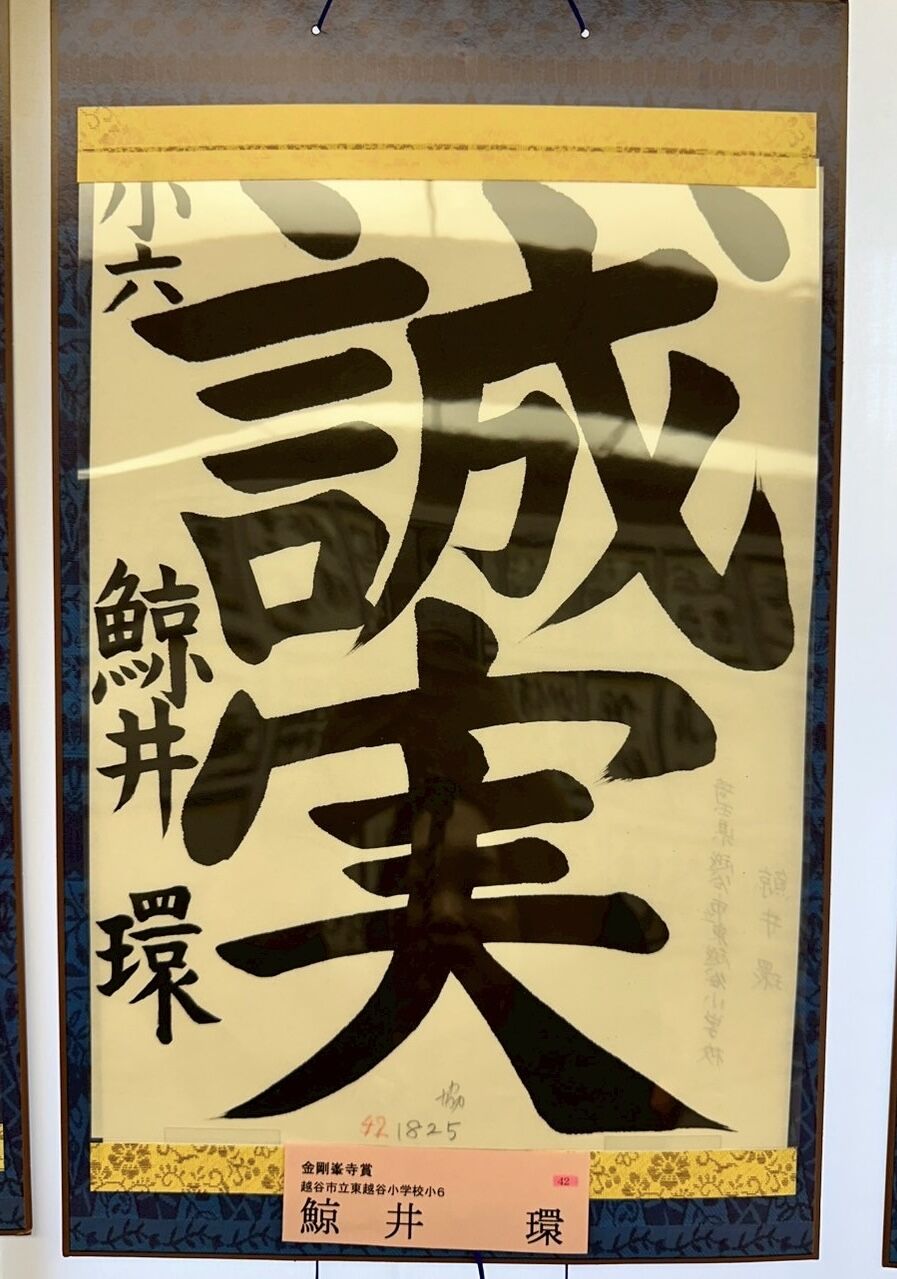 誠実
小六
鯨井 環
埼玉県越谷市立東越谷小学校
鯨井 環
協
42 1825
金剛峯寺賞
42
越谷市立東越谷小学校小6
鯨井 環